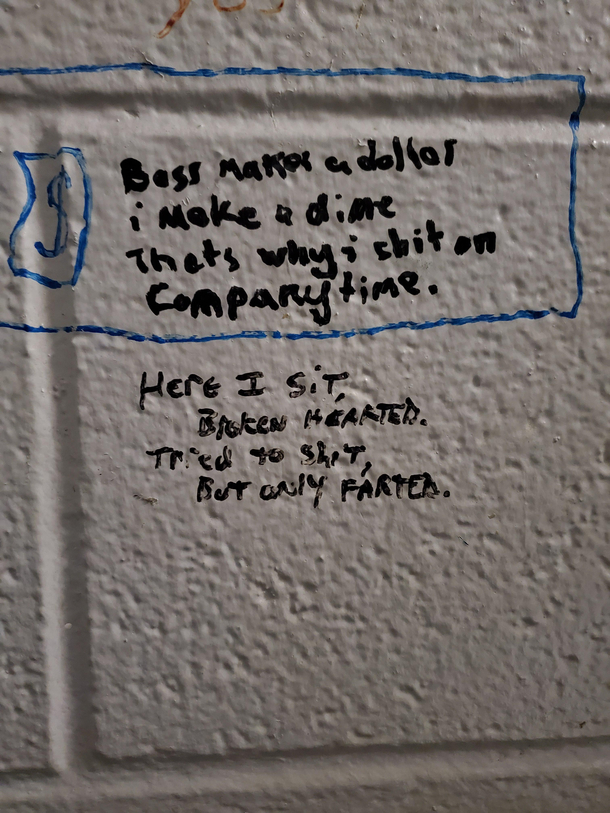 $
Boss makes a dollar
i make a dime
thats why i shit on
Company time.
HERE I SiT,
BROKEN HEARTED.
TRied to SHiT,
BUT ONLY FARTED.